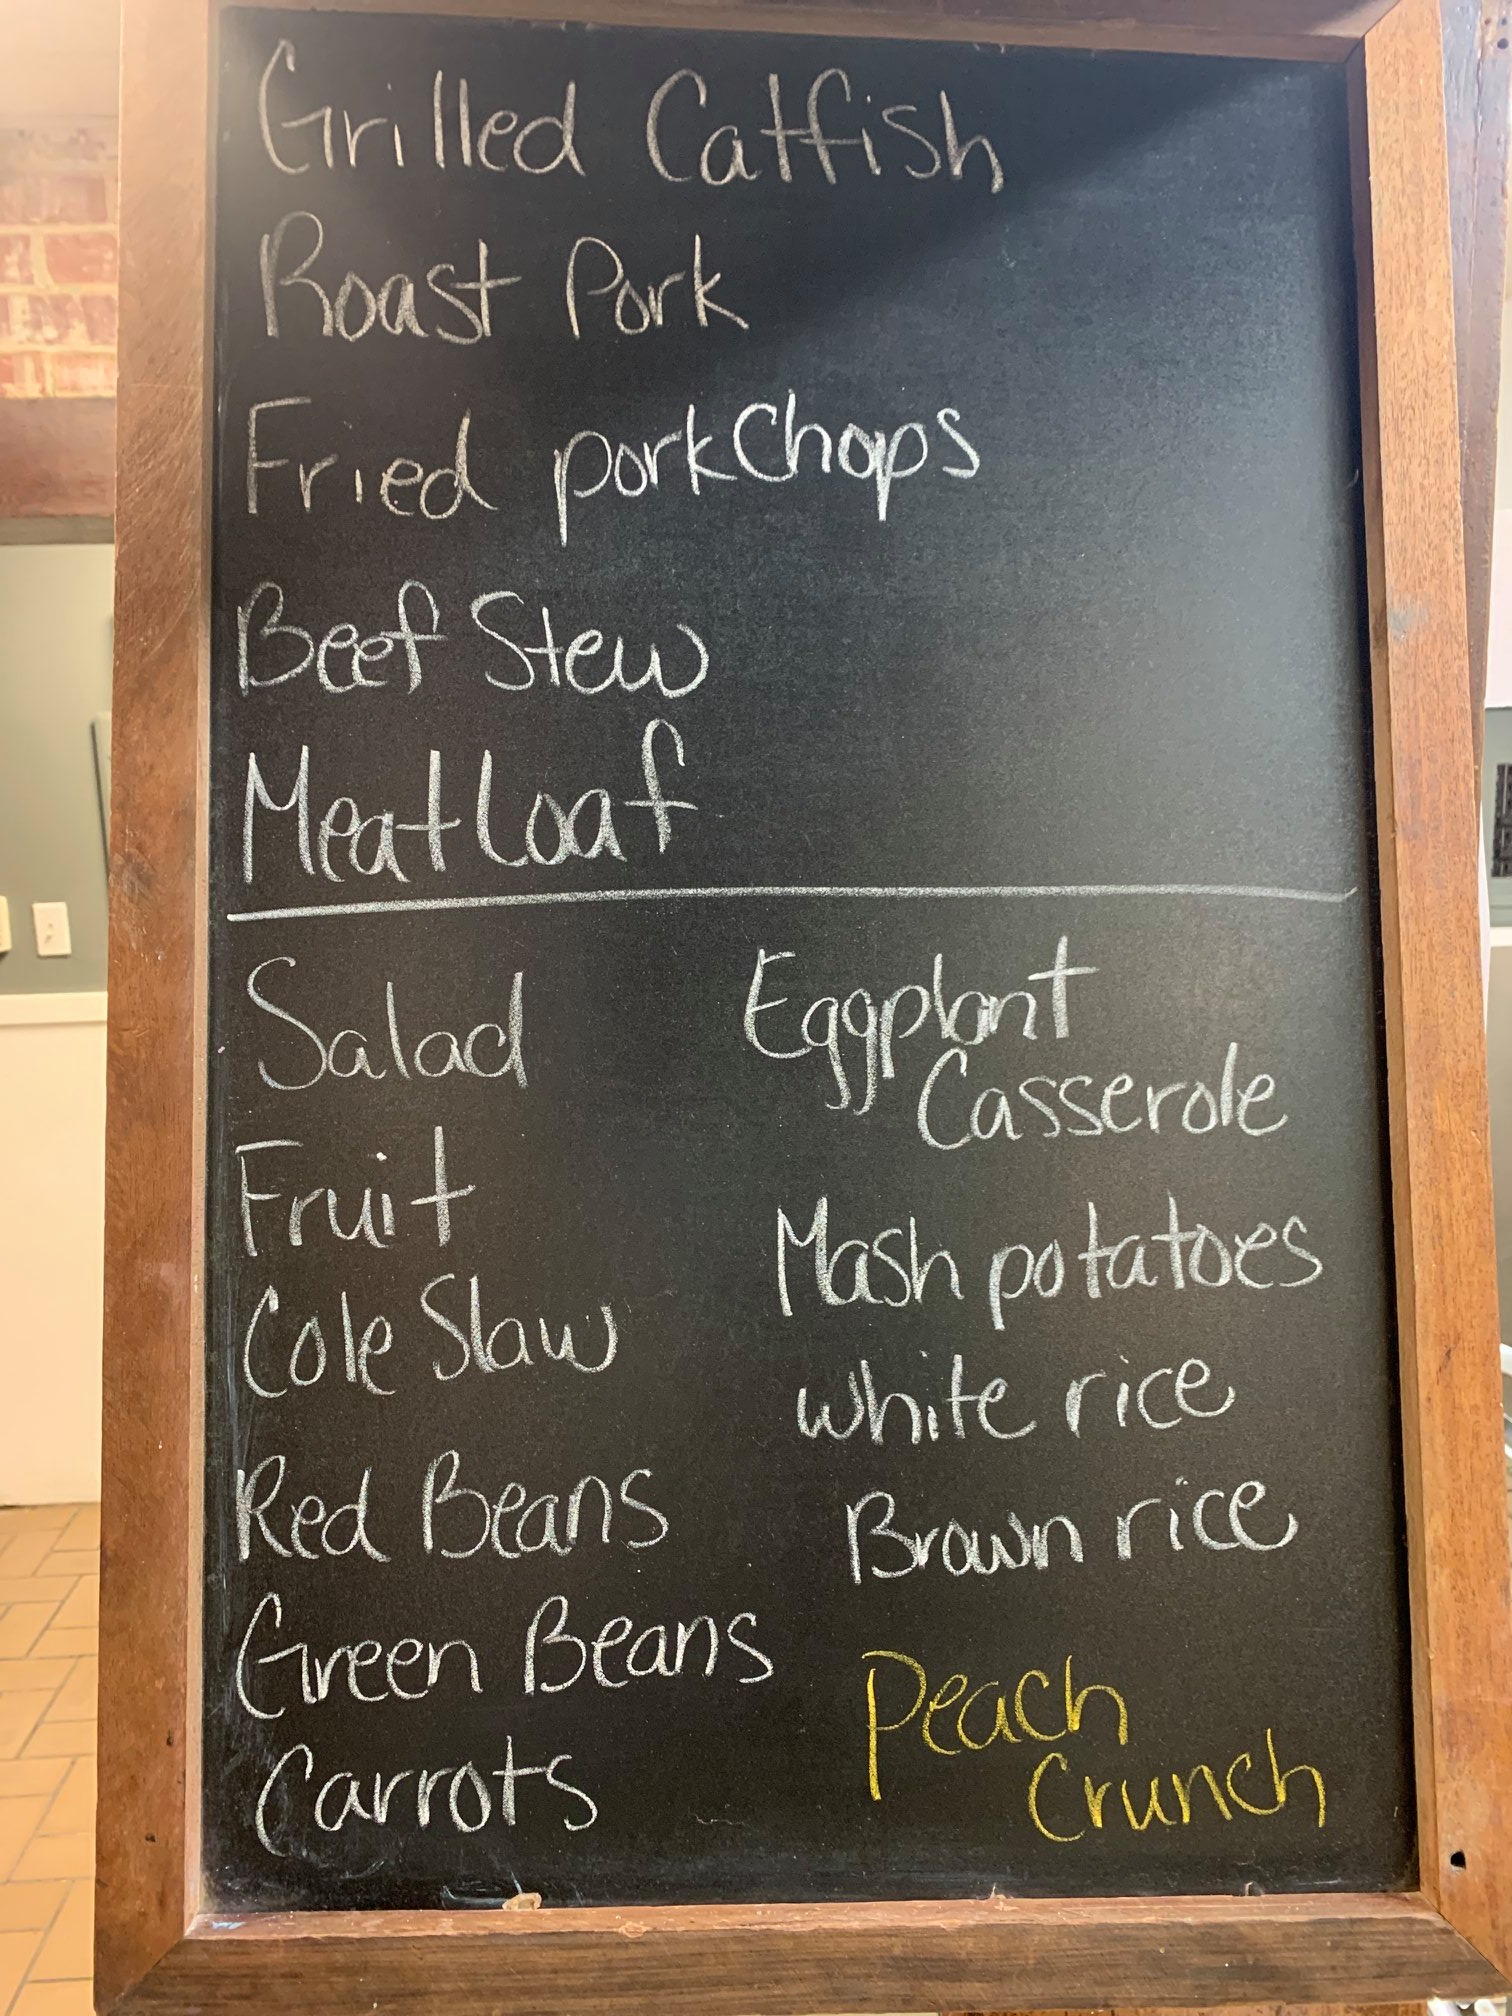 Grilled Catfish
Roast Pork
Fried porkChops
Beef Stew
Meat Loaf
Salad
Fruit
Cole Slaw
Red Beans
Green Beans
Carrots
Eggplant
Casserole
Mash potatoes
white rice
Brown rice
Peach
Crunch